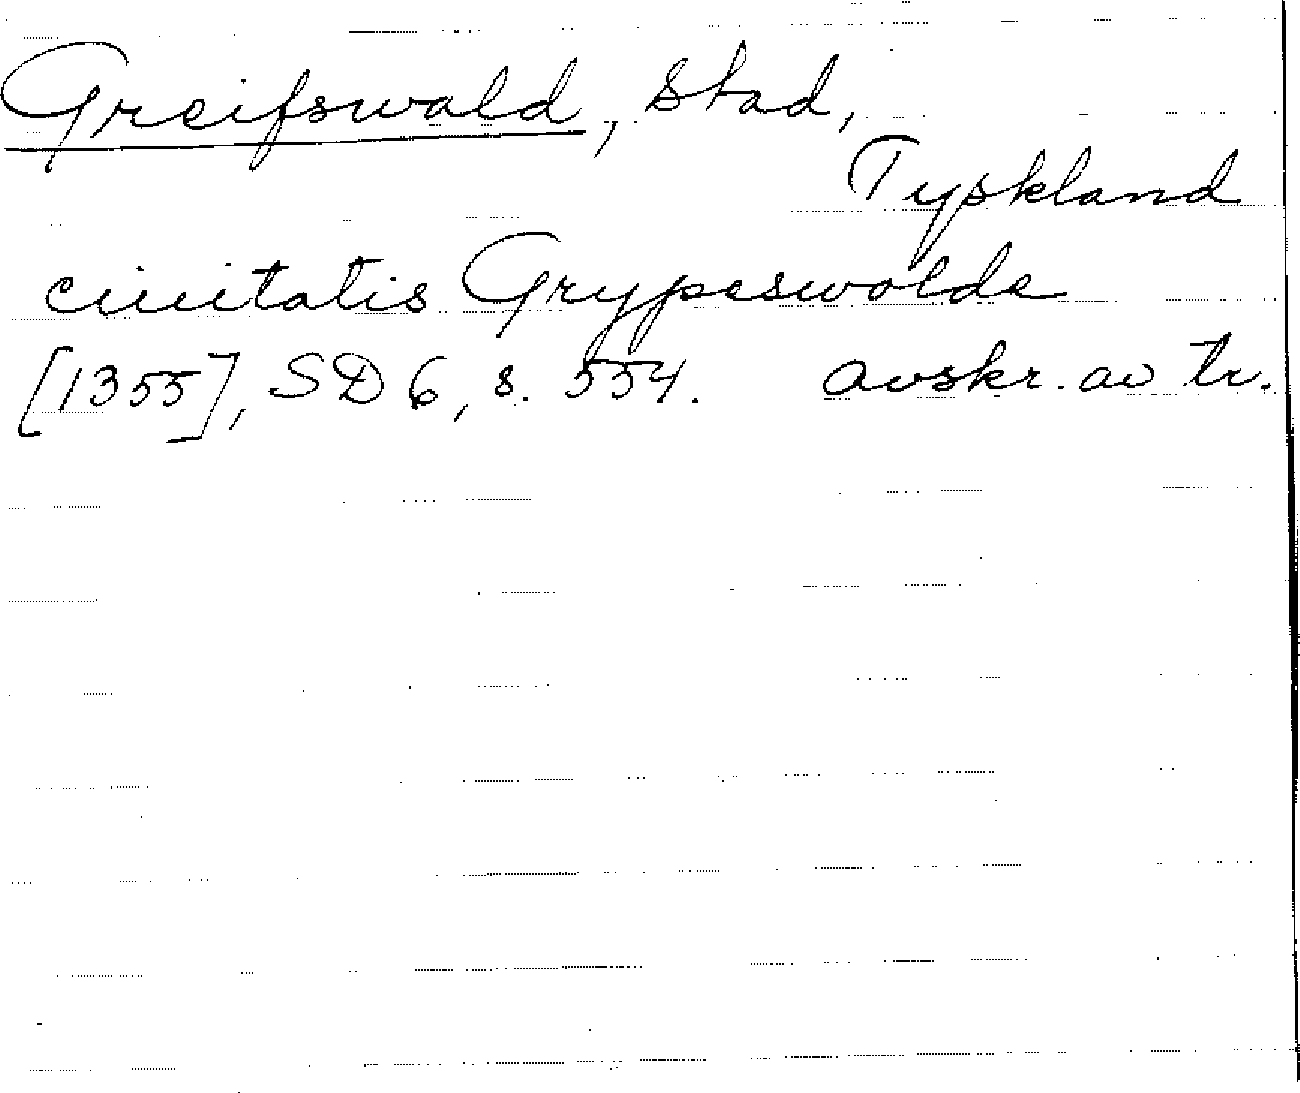 Greifswald, stad,
Tyskland
ciuitatis Grypeswolde
[1355], SD 6, s. 554. avskr. av tr.